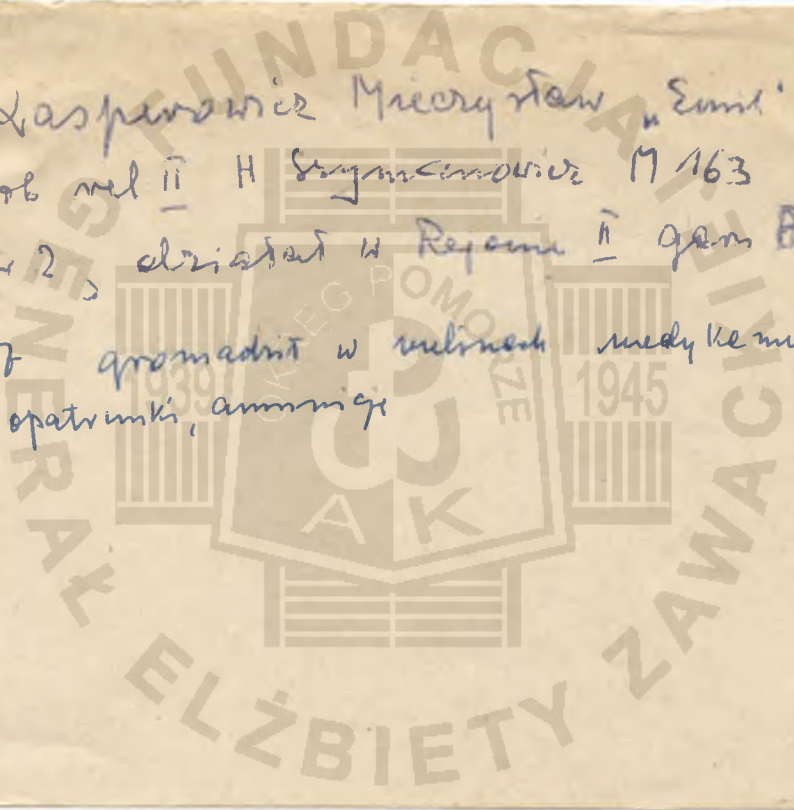 Kasperowicz Mieczysław „Emil"
ob rel II H Szymanowicz M 163
w 2, działał w Rejonie II garn B
gromadził w melinach medykame
opatrunki, amunicję
FUNDACJA GENERAŁ ELŻBIETY ZAWACKIEJ
OKRĘG POMORZE
1939 1945
AK